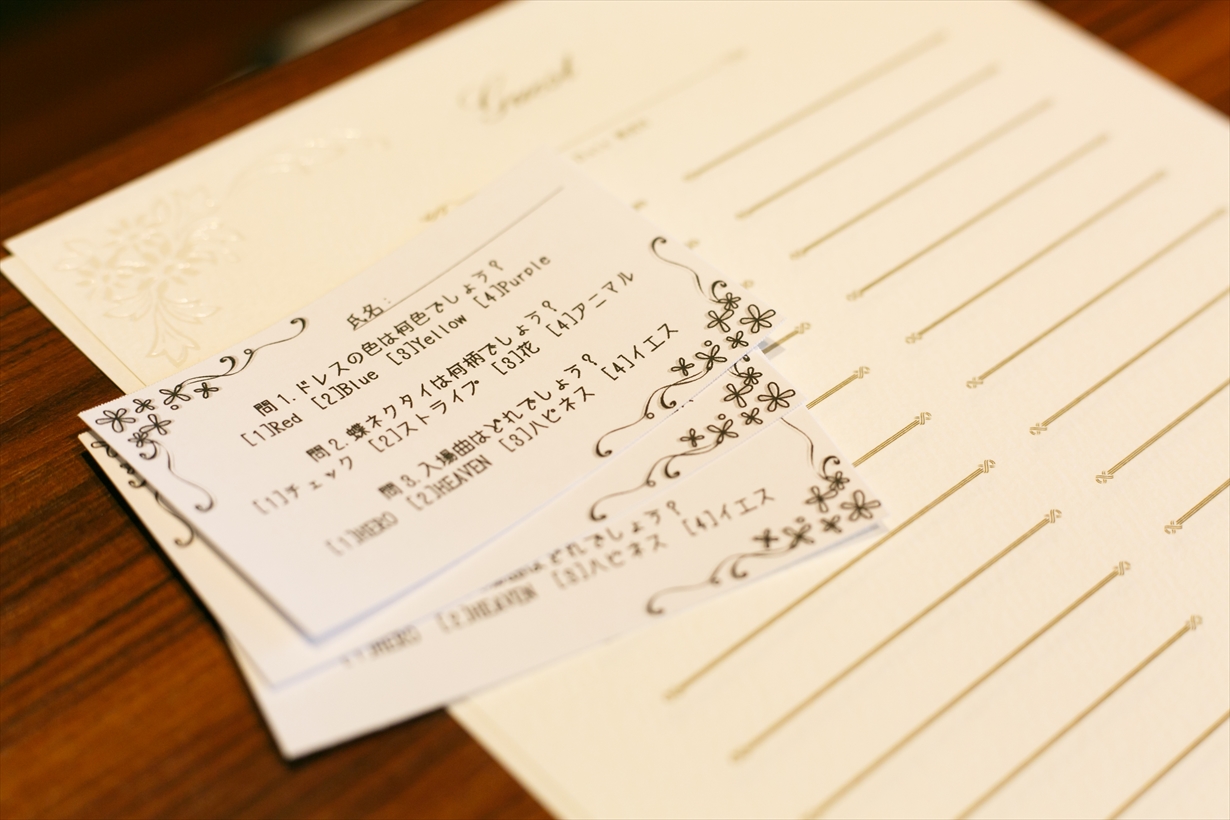 Guest
氏名:
問1.ドレスの色は何色でしょう?
[1]Red [2]Blue [3]Yellow [4]Purple
問2.蝶ネクタイは何柄でしょう?
[1]チェック [2]ストライプ [3]花 [4]アニマル
問3.入場曲はどれでしょう?
[1]HERO [2]HEAVEN [3]ハピネス [4]イエス
はどれでしょう?
[3]ハピネス [4]イエス